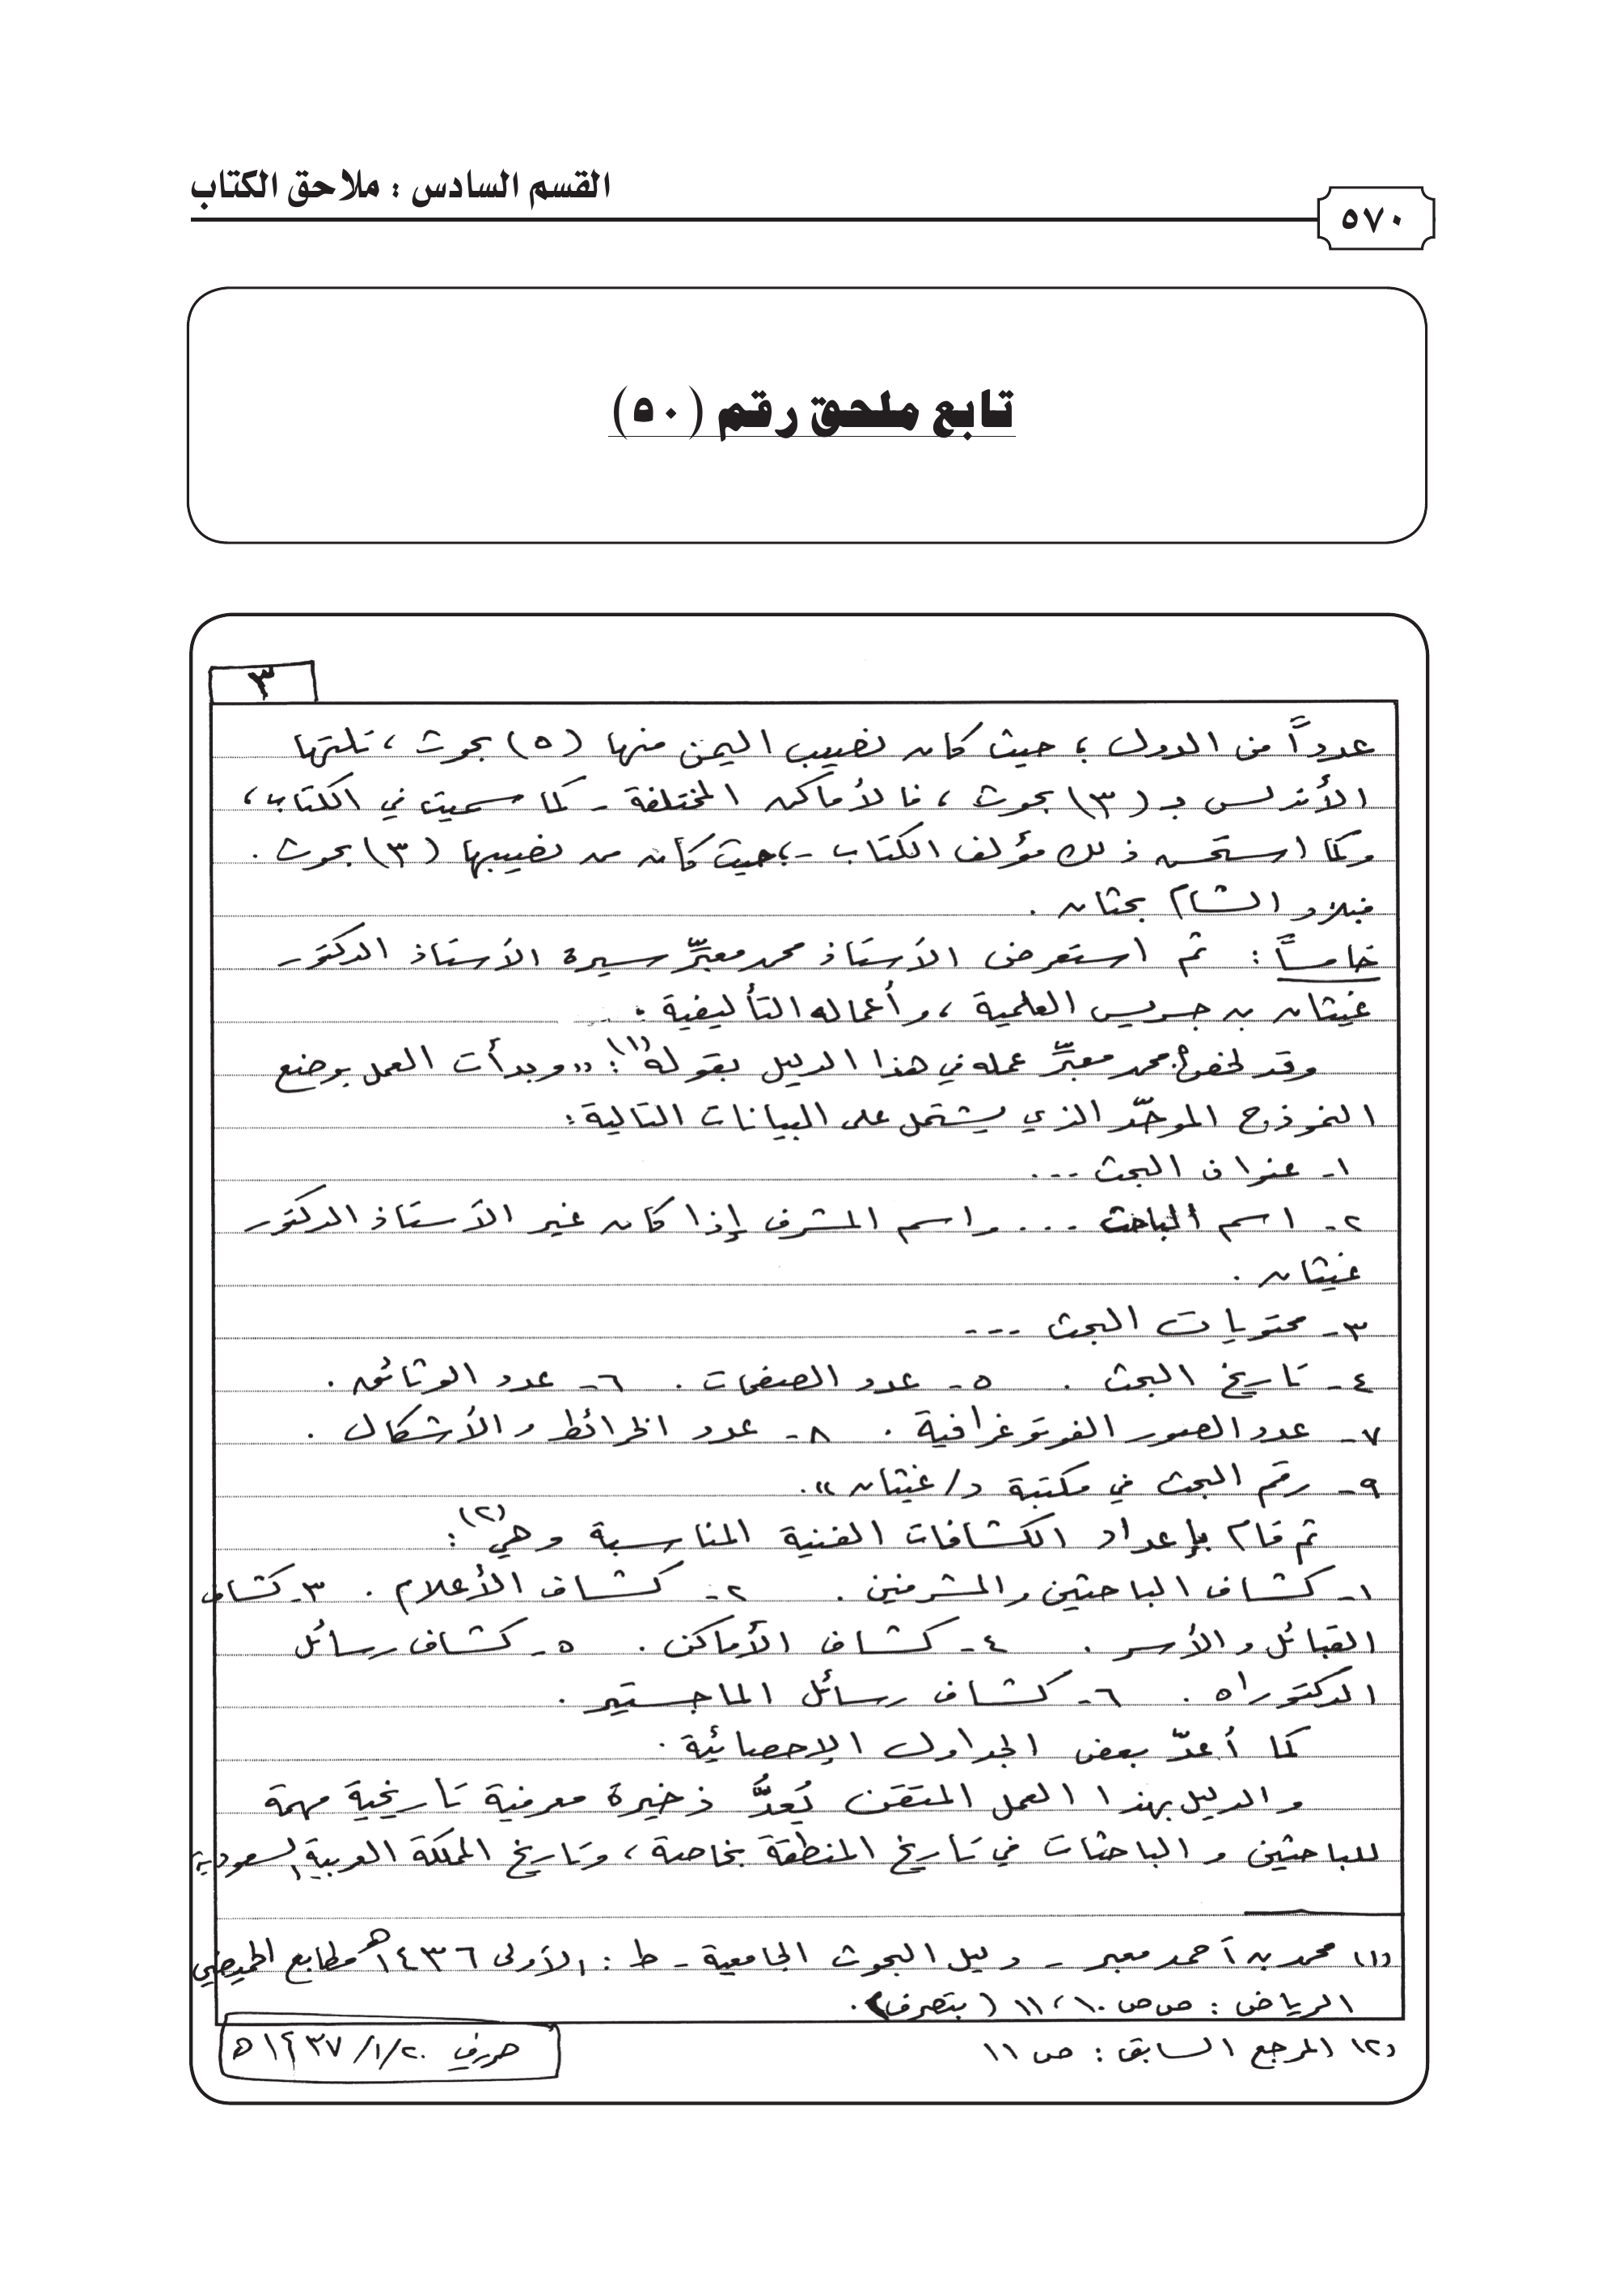 القسم السادس : ملاحق الكتاب
٥٧٠
تابع ملحق رقم (٥٠)
٣
عدداً من الدول ؛ حيث كان نصيب اليمن منها (٥) بحوث ، تلتها
الأندلس بـ (٣) بحوث ، فالأماكن المختلفة - كما سميت في الكتاب ،
وكما استحسن ذلك مؤلف الكتاب - ؛ حيث كان من نصيبها (٣) بحوث .
فبلاد الشام بحثان .
خامساً : ثم استعرض الأستاذ محمد معبّر سيرة الأستاذ الدكتور
غيثان بن جريس العلمية ، وأعماله التأليفية .
وقد لخص محمد معبّر عمله في هذا الدليل بقوله(١): «وبدأت العمل بوضع
النموذج الموحّد الذي يشتمل على البيانات التالية :
١- عنوان البحث ...
٢- اسم الباحث ... واسم المشرف إذا كان غير الأستاذ الدكتور
غيثان .
٣- محتويات البحث ...
٤- تاريخ البحث . ٥- عدد الصفحات . ٦- عدد الوثائق .
٧- عدد الصور الفوتوغرافية . ٨- عدد الخرائط والأشكال .
٩- رقم البحث في مكتبة د/ غيثان» .
ثم قام بإعداد الكشافات الفنية المناسبة وهي(٢) :
١- كشاف الباحثين والمشرفين . ٢- كشاف الأعلام . ٣- كشاف
القبائل والأسر . ٤- كشاف الأماكن . ٥- كشاف رسائل
الدكتوراه . ٦- كشاف رسائل الماجستير .
كما أعدّ بعض الجداول الإحصائية .
والدليل بهذا العمل المتقن يُعدُّ ذخيرة معرفية تاريخية مهمة
للباحثين والباحثات في تاريخ المنطقة بخاصة ، وتاريخ المملكة العربية السعودية
(١) محمد بن أحمد معبر - دليل البحوث الجامعية - ط : الأولى ١٤٣٦هـ مطابع الحميضي
الرياض : ص ص ١٠ ، ١١ (بتصرف) .
(٢) المرجع السابق : ص ١١
٢٠/١/١٤٣٧هـ